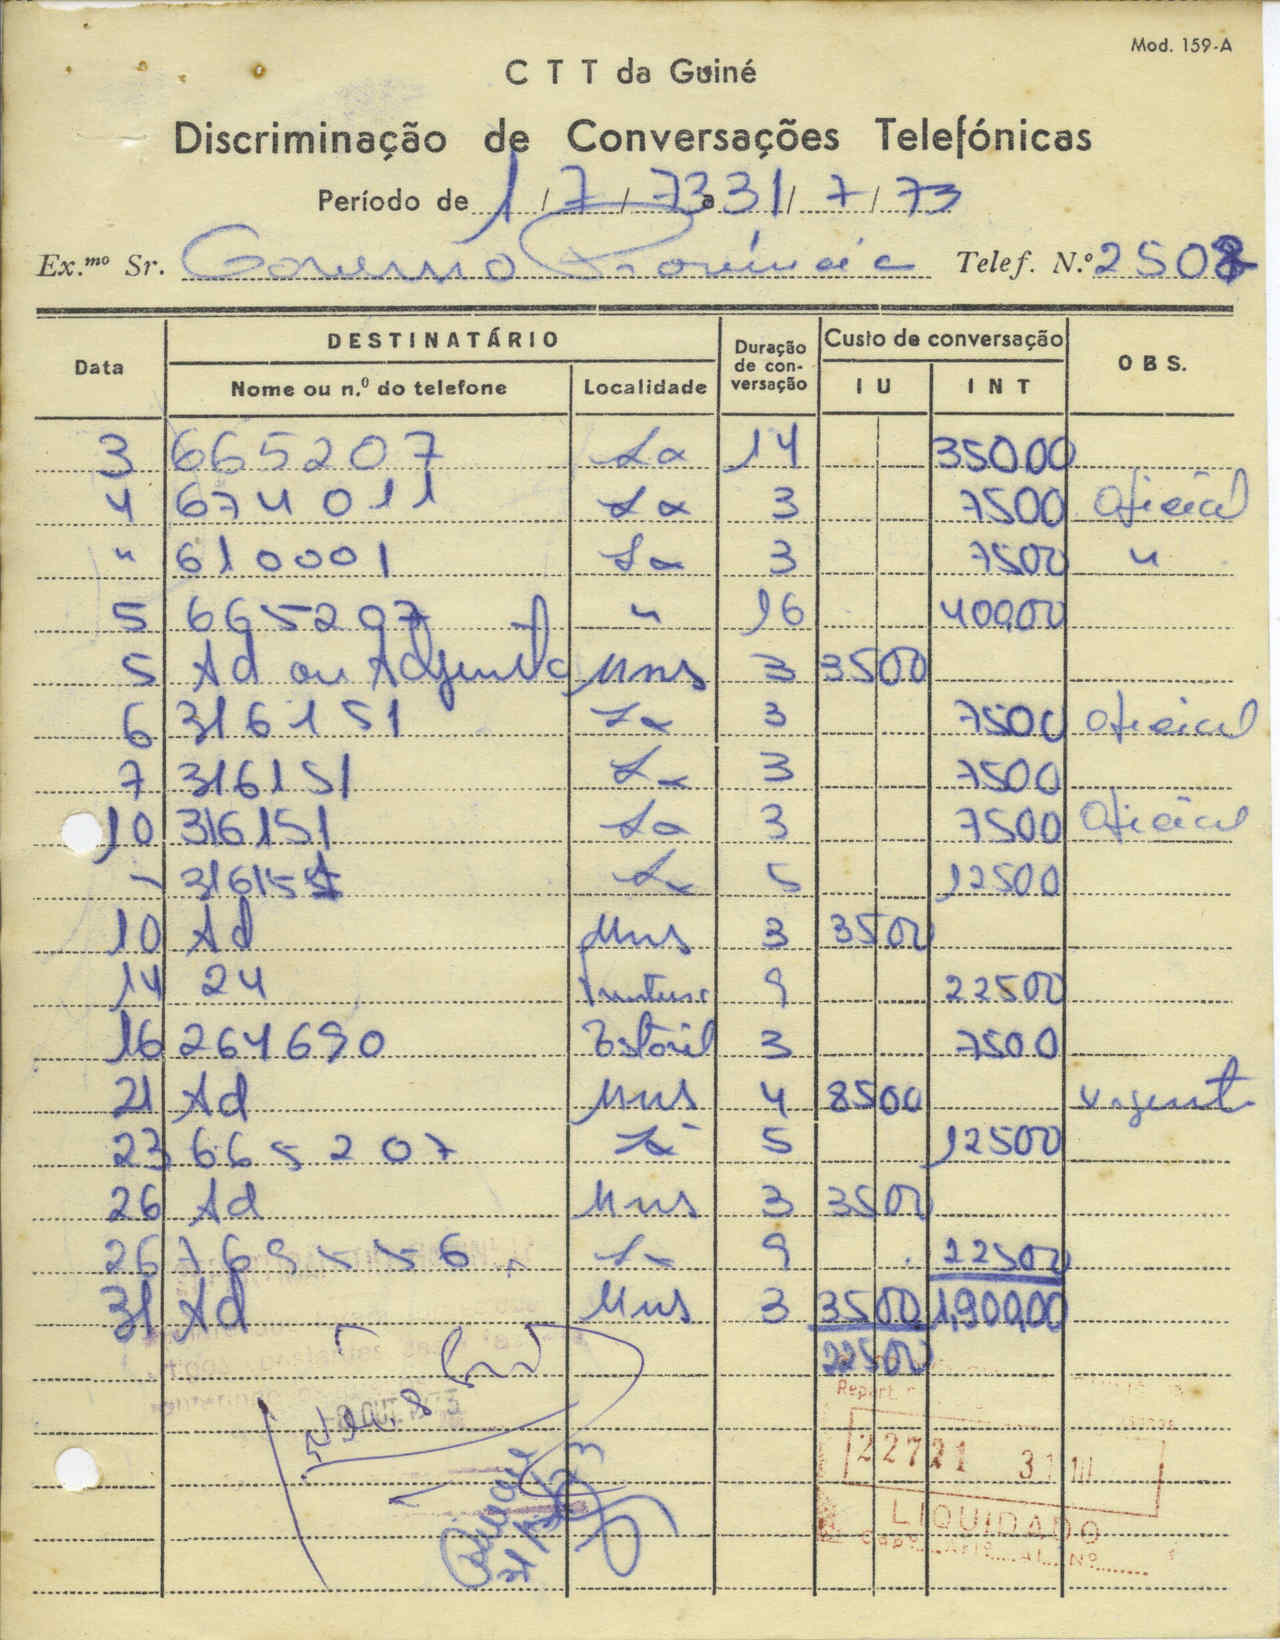 Mod. 159-A
C T T da Guiné
Discriminação de Conversações Telefónicas
Período de 1 / 7 / 73 a 31 / 7 / 73
Ex.mo Sr. Governo Provincia Telef. N.º 2508
Data DESTINATÁRIO Duração de con-versação Custo de conversação OBS.
Nome ou n.º do telefone Localidade I U I N T
3 665207 Lx 14 35000
4 674011 Lx 3 7500 Oficial
" 610001 Lx 3 7500 "
5 665207 " 16 40000
5 Ad ou Adjunto Mns 3 3500
6 316151 Lx 3 7500 Oficial
7 316151 Lx 3 7500
10 316151 Lx 3 7500 Oficial
" 316155 Lx 5 12500
10 Ad Mns 3 3500
14 24 9 22500
16 264690 Estoril 3 7500
21 Ad Mns 4 8500 Urgente
23 665207 Lx 5 12500
26 Ad Mns 3 3500
26 769556 Lx 9 22500
31 Ad Mns 3 3500 1,900,00
22500
22721 31
LIQUIDADO
Nº